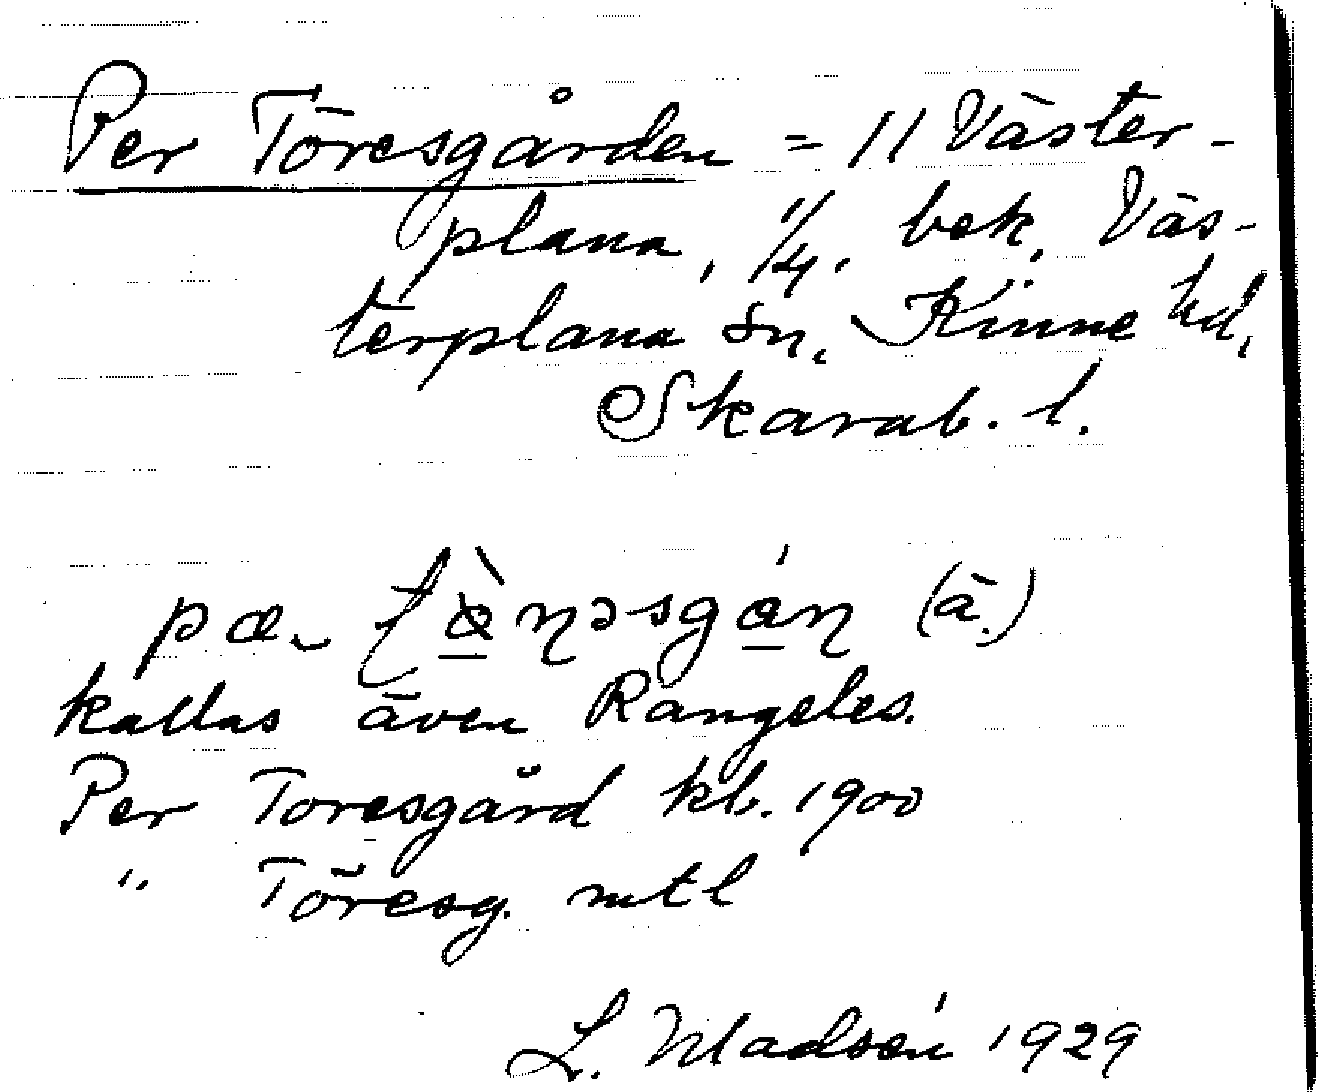 Per Töresgården = 11 Väster-
plana, 1/4, bek, Väs-
terplana sn, Kinne hd,
Skarab. l.
(ä.)
kallas även Rangeles.
Per Toresgård kb. 1900
" Töresg. mtl
L. Madsén 1929